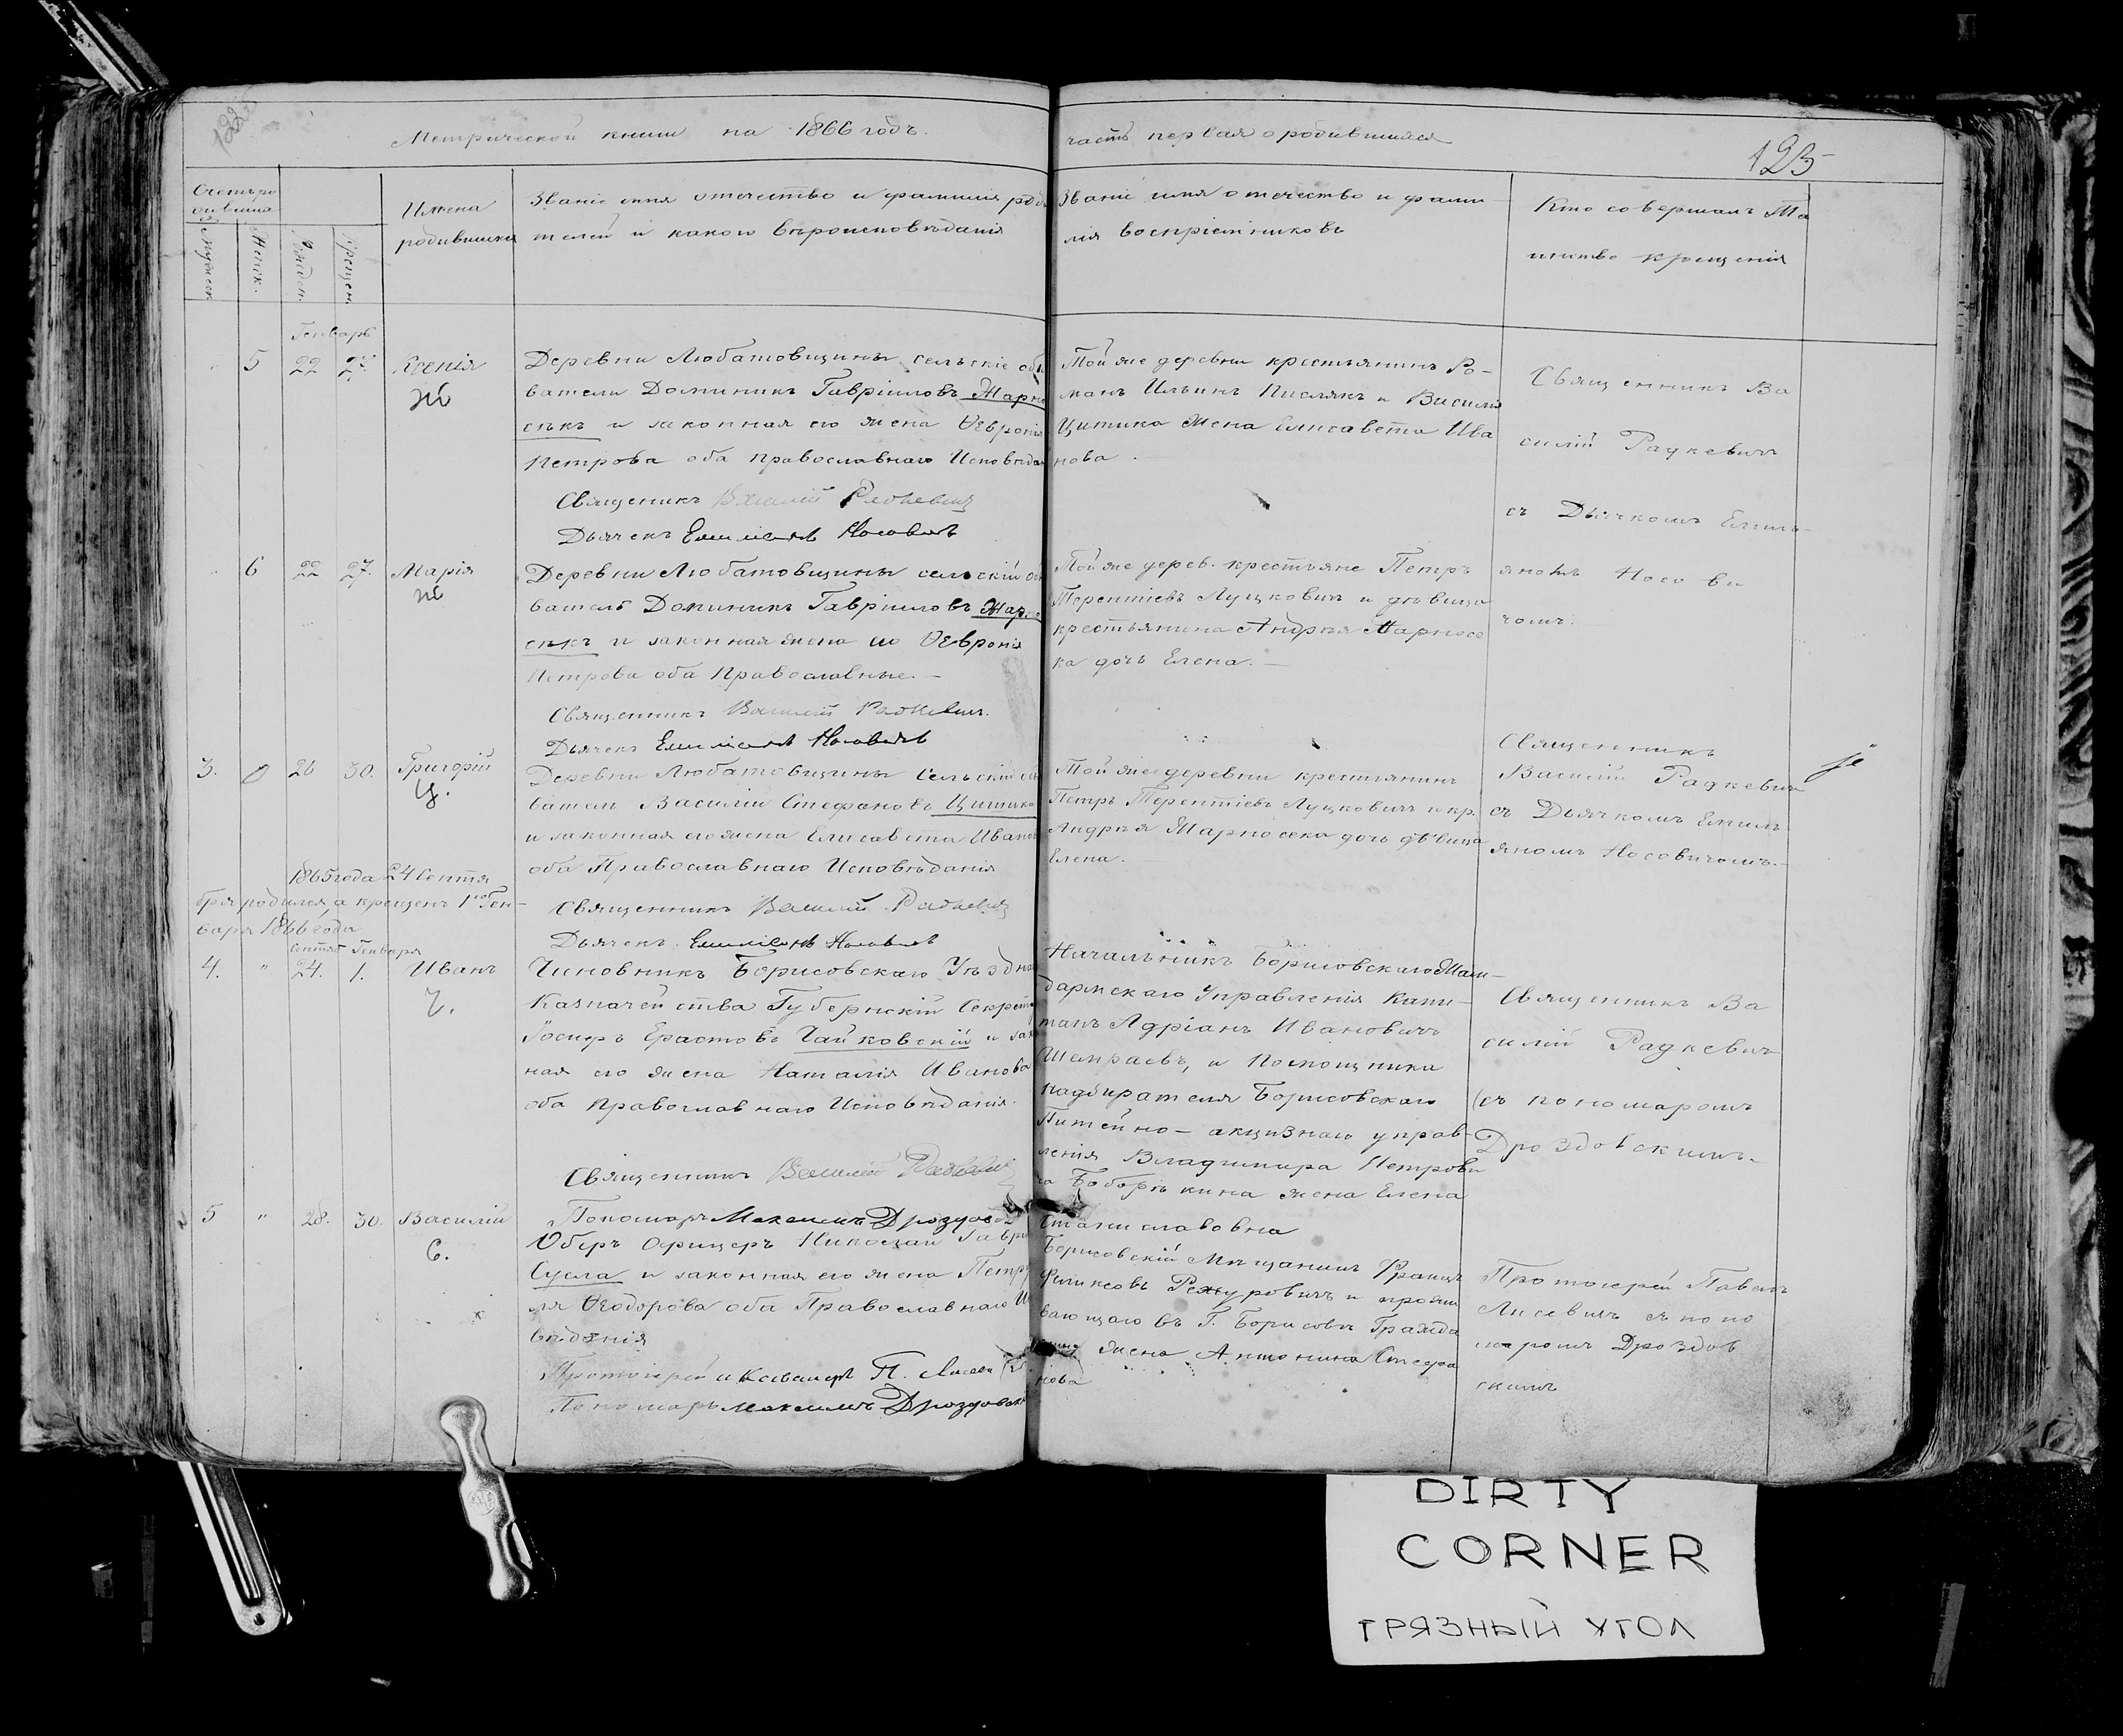 Метрической книги на 1866 годъ.
часть первая о родившихся
125
Имена
родившихся
Званіе имя отечество и фамилія роди
телей и какого вѣроисповѣданія
Званіе имя отечество и фами
лія воспріемниковъ
Кто совершалъ Та
инство крещенія
Мужеск.
Женск.
Рожден.
Крещен.
Генварь
5 22 27. Ксенія
Ж
Деревни Любатовщины сельскіе обы
ватели Доминикъ Гавріиловъ Марно
сѣкъ и законная его жена Ѳевронія
Петрова оба православнаго Исповѣдан
Священикъ Василій Радкевичъ
Дьячекъ Емиліанъ Носовичъ
Той же деревни крестьянинъ Ро-
манъ Ильинъ Кислякъ и Василія
Цитика жена Елисавета Ива
нова.
Священникъ Ва
силій Радкевичъ
съ Дьячкомъ Емиль-
яномъ Носови
чомъ.
6 22 27. Марія
Ж
Деревни Любатовщины сельскій об
ватель Доминикъ Гавріиловъ Марно
сѣкъ и законная жена его Ѳевронія
Петрова оба Православные.
Священникъ Василій Радкевичъ.
Дьячекъ Емиліанъ Носовичъ
Той же дерев. крестьяне Петръ
Терентіевъ Луцковичъ и дѣвица
крестьянина Андрея Марносе
ка дочь Елена.
3. 0 26 30. Григорій
Ц.
Деревни Любатовщины Сельскій об
ватель Василій Стефановъ Цитикъ
и законная его жена Елисавета Иванов
оба Православнаго Исповѣданія
Священникъ Василій Радкевичъ
Дьячекъ Емиліанъ Носовичъ
Той же деревни крестьянинъ
Петръ Терентіевъ Луцковичъ и кр.
Андрея Марносека дочь дѣвица
Елена.
Священникъ
Василій Радкевичъ
съ Дьячкомъ Емиль-
яномъ Носовичомъ.
1865 года 24 Сентя
бря родился, а крещенъ 1го Ген-
варя 1866 года
Сентяб Генваря
4. " 24. 1. Иванъ
Ч.
Чиновникъ Борисовскаго Уѣздна
Казначейства Губернскій Секрета
Іосифъ Ерастовъ Чайковскій и зак
ная его жена Наталія Иванова
оба Православнаго Исповѣданія.
Священникъ Василій Радкевичъ
Пономарь Максимъ Дроздов
Начальникъ Борисовскаго Жан-
дармскаго Управленія Капи-
танъ Адріанъ Ивановичъ
и Помощника
надзирателя Борисовскаго
Питейно-акцизнаго управ-
ленія Владиміра Петрови
ча Боборыкина жена Елена
Станиславовна
Священникъ Ва
силій Радкевичъ
съ пономаромъ
Дроздовскимъ.
5 " 28. 30. Василій
С.
Оберъ Офицеръ Николай Гаврі
Сусла и законная его жена Петру
ля Ѳеодорова оба Православнаго И
вѣданія
Протоіерей и Кавалеръ П.
Пономарь Максимъ Дроздовск
Борисовскій Мѣщанинъ Францъ
Феликсовъ и прожи
вающаго въ Г. Борисовѣ Гражда
жена Антонина Стефа
нова
Протоіерей Павелъ
Лисевичъ съ поно
маромъ Дроздов
скимъ
DIRTY
CORNER
ГРЯЗНЫЙ УГОЛ